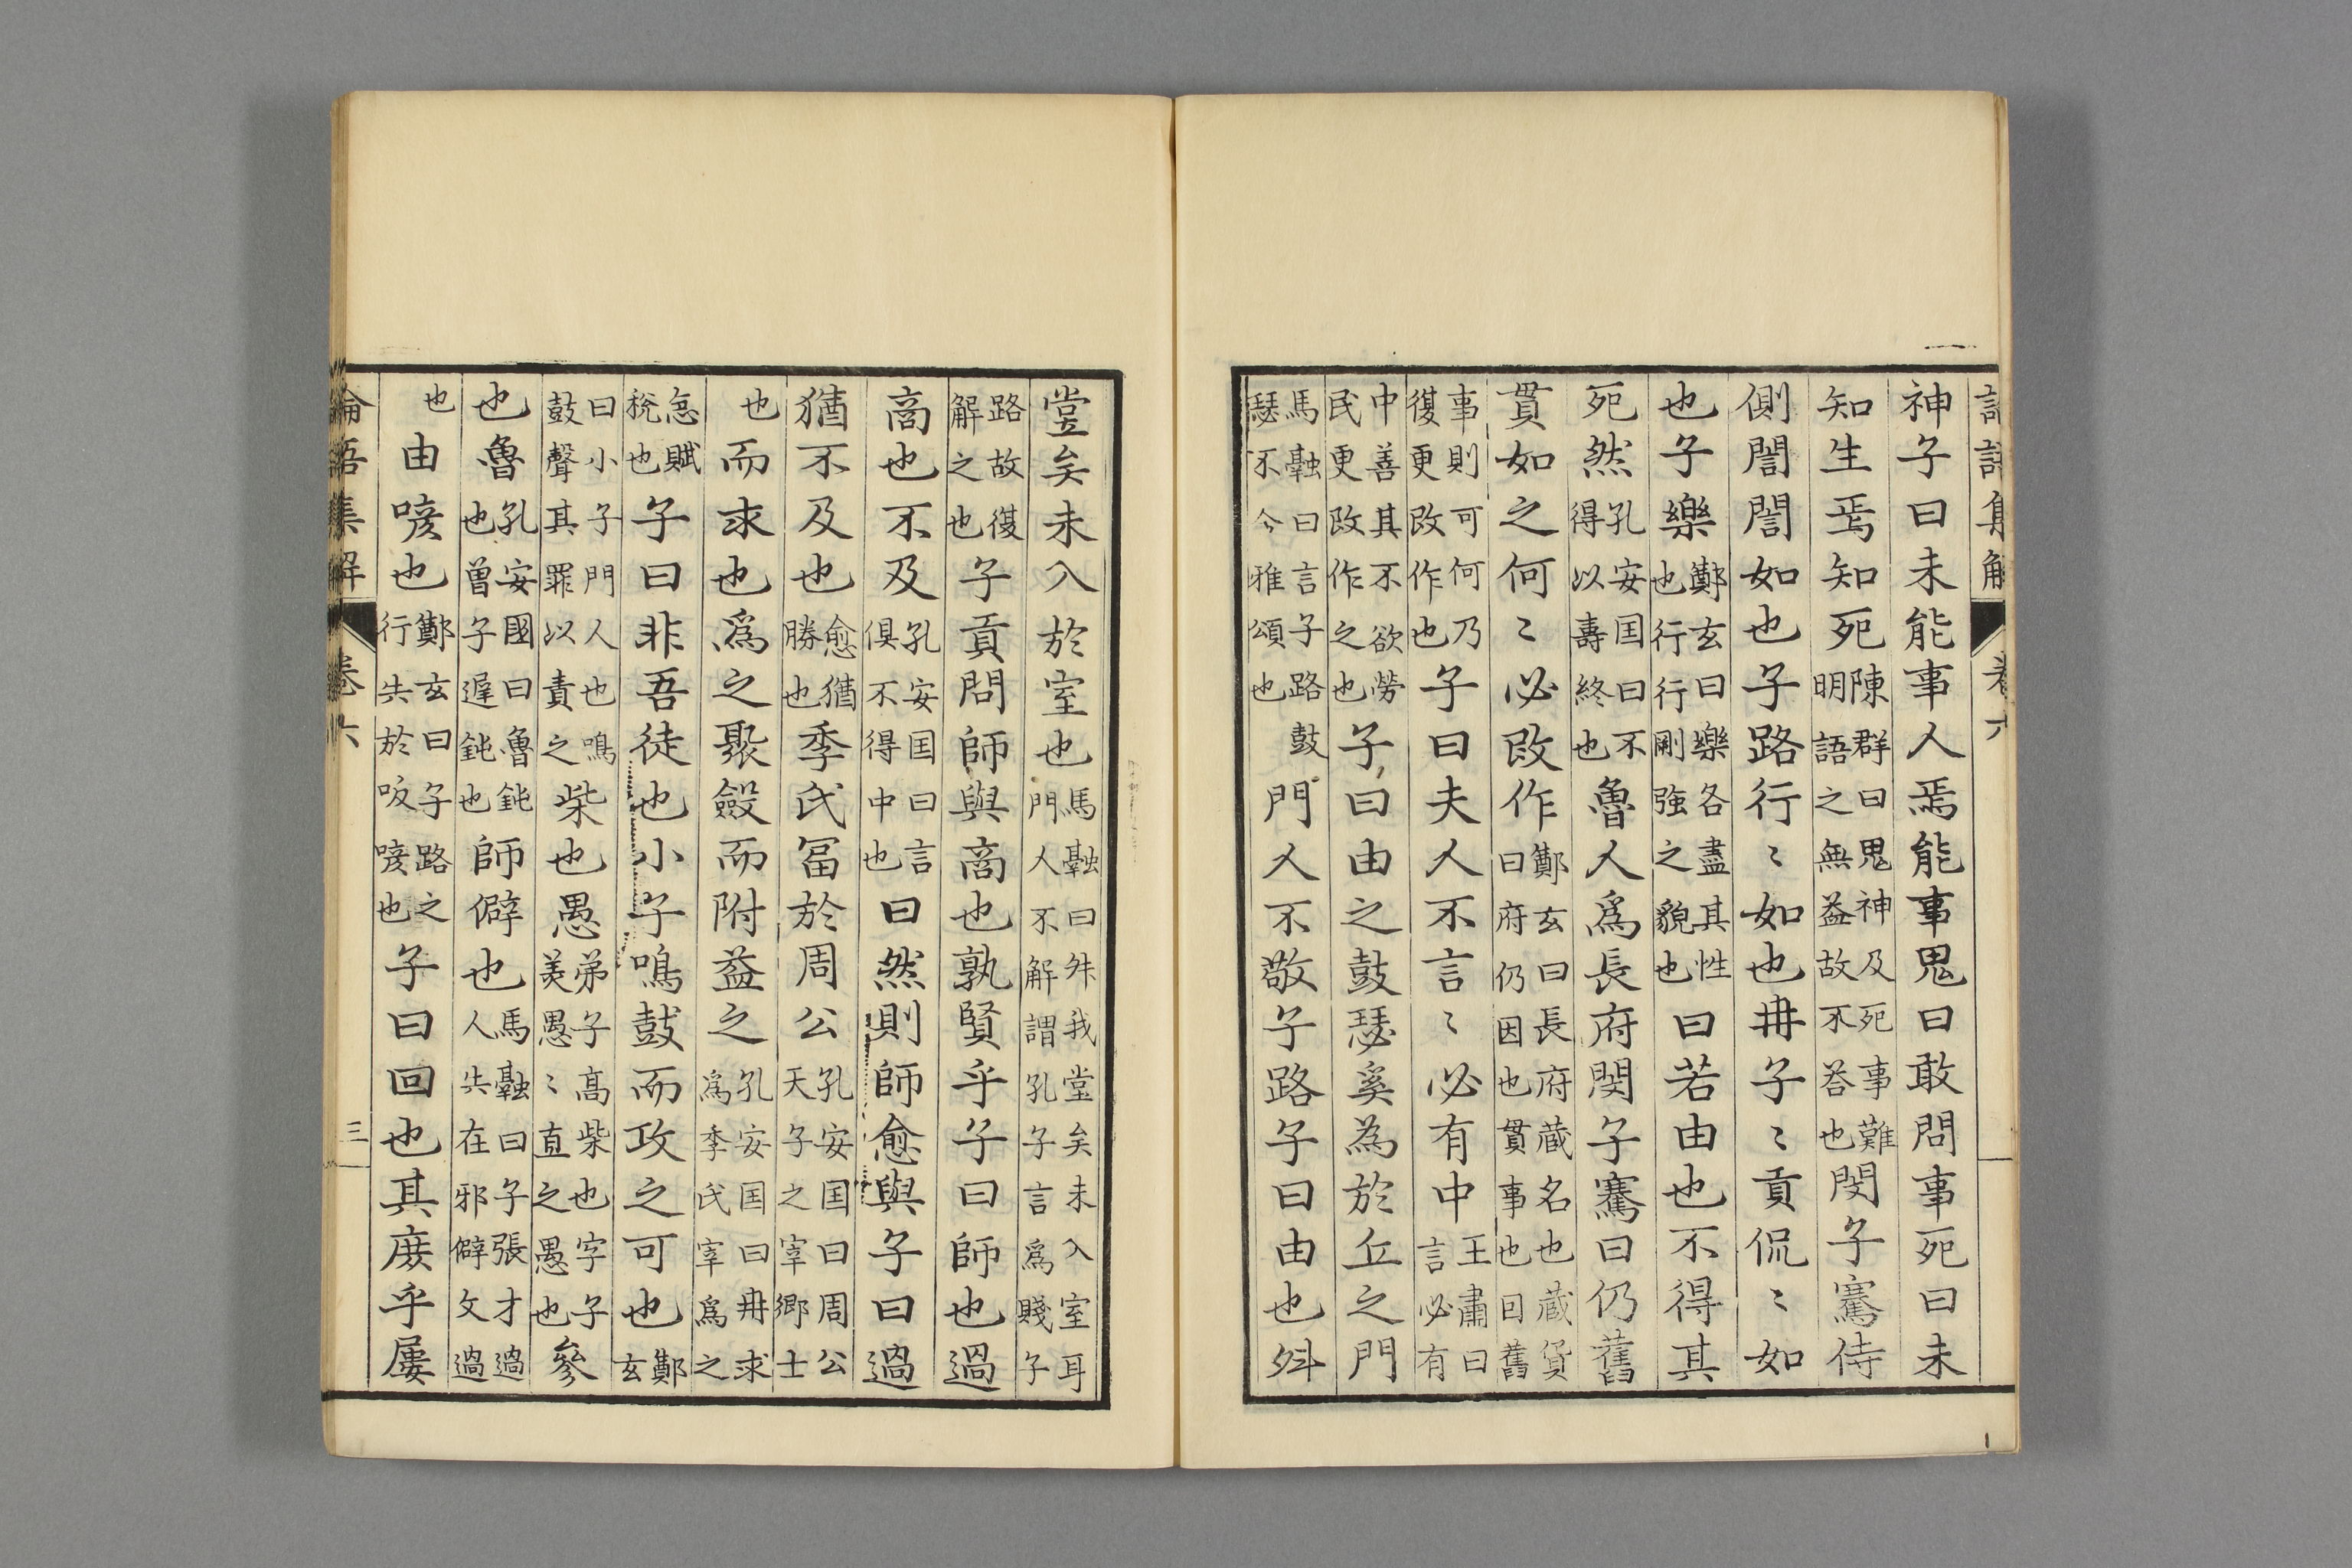 論語集解 卷六
神子曰未能事人焉能事鬼曰敢問事死曰未
知生焉知死陳群曰鬼神及死事難明語之無益故不荅也閔子騫侍
側誾誾如也子路行〻如也冉子〻貢侃〻如
也子樂鄭玄曰樂各盡其性也行行剛強之貌也曰若由也不得其
死然孔安囯曰不得以壽終也魯人爲長府閔子騫曰仍舊
貫如之何〻必改作鄭玄曰長府蔵名也蔵貨曰府仍因也貫事也因舊
事則可何乃復更改作也子曰夫人不言〻必有中王肅曰言必有
中善其不欲勞民更改作之也子曰由之鼓瑟奚為於丘之門
馬融曰言子路鼓瑟不今雅頌也門人不敬子路子曰由也升
堂矣未入於室也馬融曰升我堂矣未入室耳門人不解謂孔子言爲賤子
路故復解之也子貢問師與商也孰賢乎子曰師也過
商也不及孔安囯曰言俱不得中也曰然則師愈與子曰過
猶不及也愈猶勝也季氏冨於周公孔安囯曰周公天子之宰卿士
也而求也爲之聚斂而附益之孔安囯曰冉求爲季氏宰爲之
急賦稅也子曰非吾徒也小子鳴鼓而攻之可也鄭玄
曰小子門人也鳴鼓聲其罪以責之柴也愚弟子高柴也字子羔愚〻直之愚也參
也魯孔安國曰魯鈍也曽子遲鈍也師僻也馬融曰子張才過人失在邪僻文過
也由喭也鄭玄曰子路之行失於吸喭也子曰回也其庻乎屢
論語集解 卷六 三